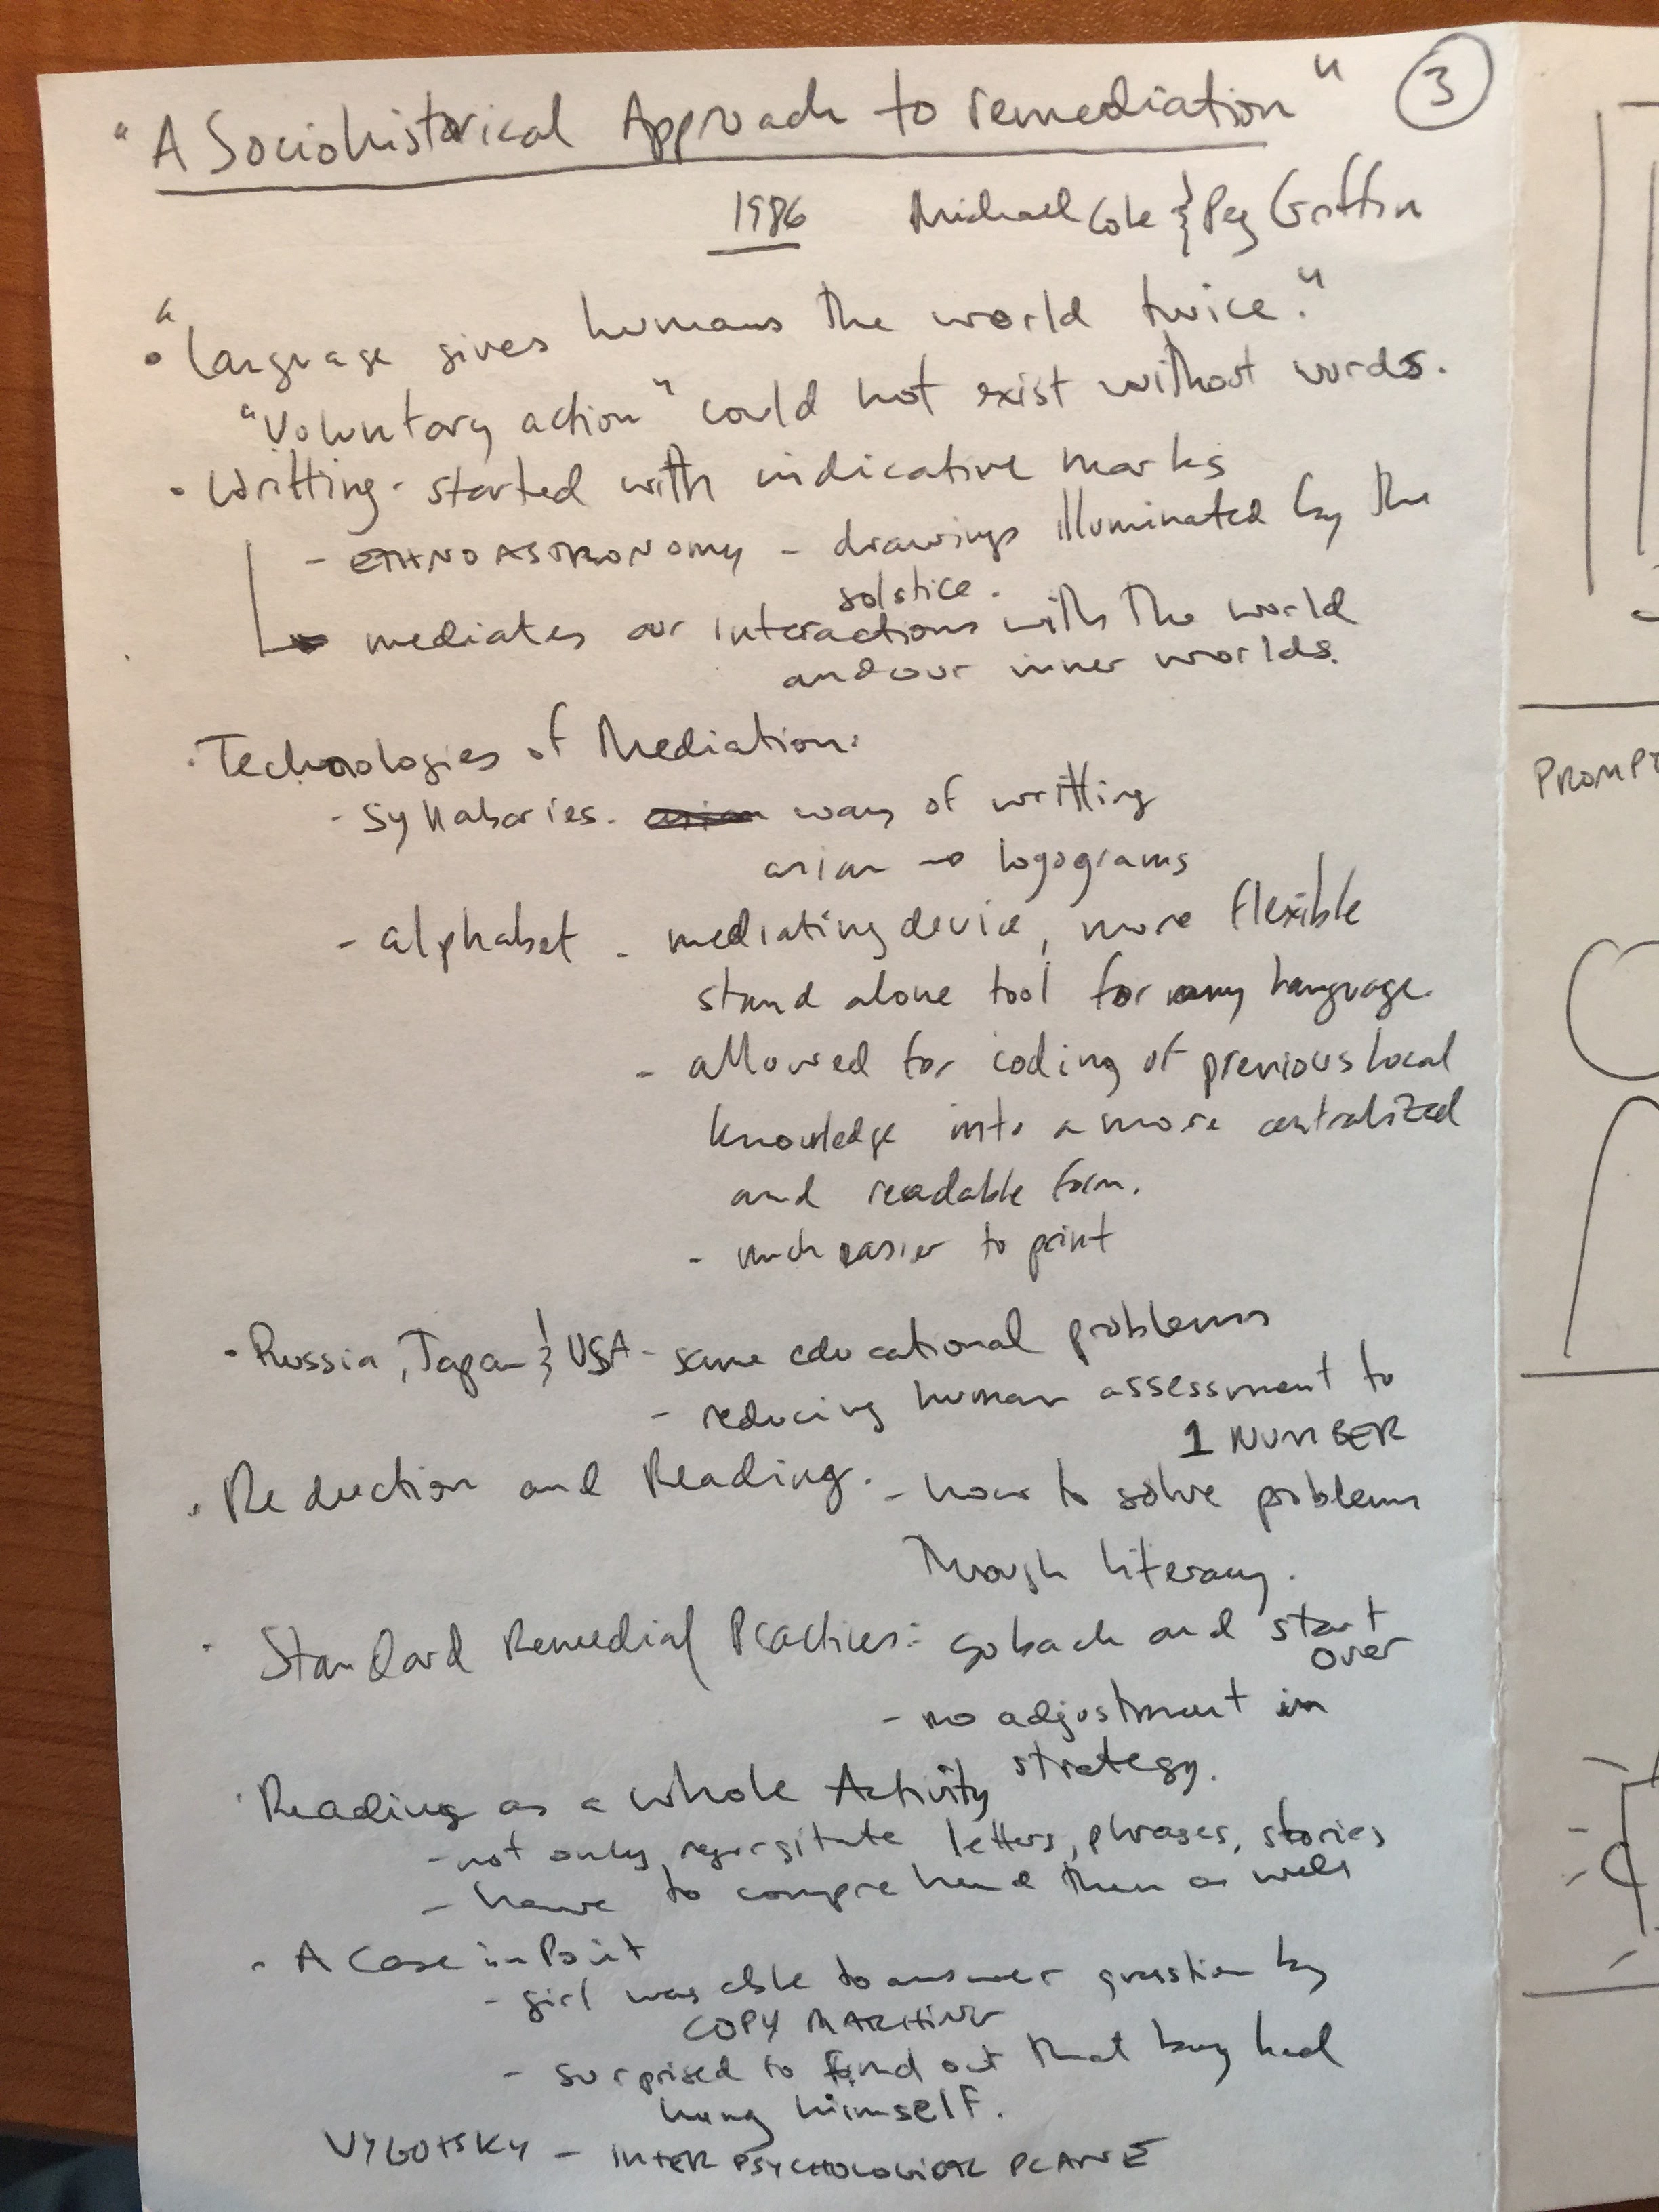 "A Sociohistorical Approach to remediation" 3
1986 Michael Cole & Peg Griffin
• "Language gives humans the world twice."
"Voluntary action" could not exist without words.
• Writting - started with indicative marks
- ETHNOASTRONOMY - drawings illuminated by the
solstice.
mediates our interactions with the world
and our inner worlds.
• Technologies of Mediation:
- Syllabaries - ways of writting
asian → logograms
- alphabet - mediating device, more flexible
stand alone tool for any language.
- allowed for coding of previous local
knowledge into a more centralized
and readable form.
- much easier to print
• Russia, Japan & USA - same educational problems
- reducing human assessment to
1 NUMBER
• Reduction and Reading. - how to solve problems
through literacy.
• Standard Remedial Practices: go back and start
over
- no adjustment in
strategy.
• Reading as a whole Activity
- not only regurgitate letters, phrases, stories
- have to comprehend them as well
• A Case in Point
- girl was able to answer question by
COPY MATCHING
- surprised to find out that boy had
hung himself.
VYGOTSKY - INTERPSYCHOLOGICAL PLANE
PROMPT